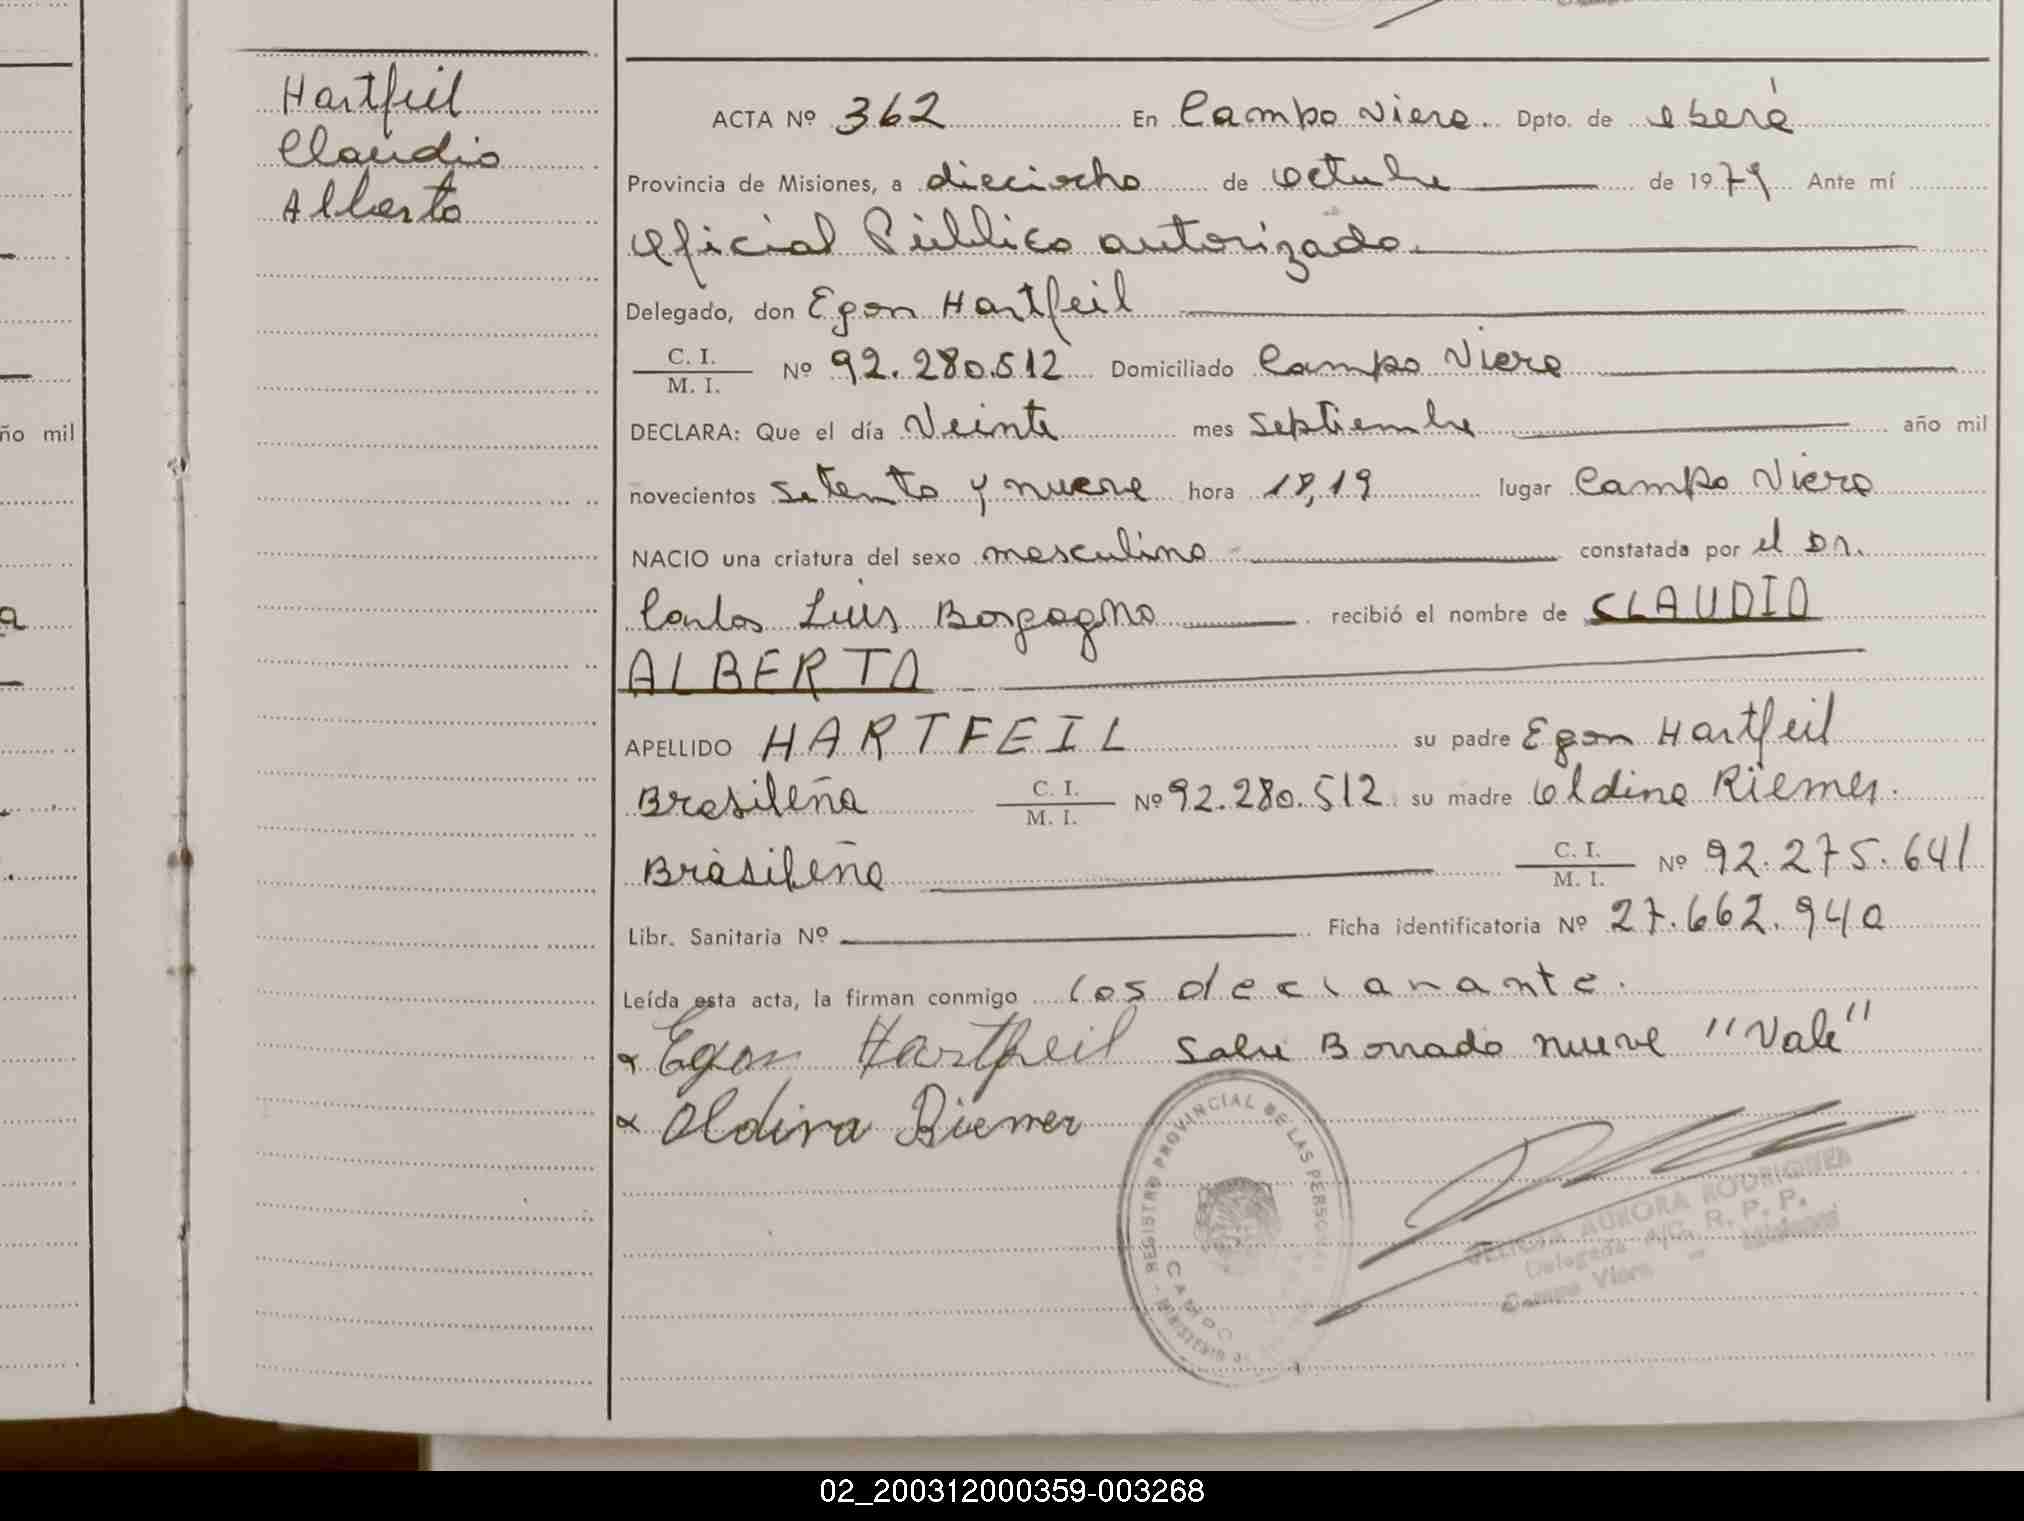 Hartfeil
Claudio
Alberto
ño mil
ACTA Nº 362 En Campo Viera. Dpto. de Oberá
Provincia de Misiones, a dieciocho de Octubre de 1979 Ante mí
Oficial Público autorizado.
Delegado, don Egon Hartfeil
C. I.
M. I. Nº 92.280.512 Domiciliado Campo Viera
DECLARA: Que el día Veinte mes Septiembre año mil
novecientos setenta y nueve hora 18,19 lugar Campo Viera
NACIO una criatura del sexo masculino constatada por el Dr.
Carlos Luis Borgogno recibió el nombre de CLAUDIO
ALBERTO
APELLIDO HARTFEIL su padre Egon Hartfeil
Brasileña C. I.
M. I. Nº 92.280.512 su madre Oldina Riemer.
Brasileña C. I.
M. I. Nº 92.275.641
Libr. Sanitaria Nº Ficha identificatoria Nº 27.662.940
Leída esta acta, la firman conmigo los declarante.
Egon Hartfeil Sobre Borrado nueve "Vale"
Oldina Riemer
REGISTRO PROVINCIAL DE LAS PERSONAS
AURORA RODRIGUEZ
Delegada A/C. R. P. P.
Campo Viera - Misiones
02_200312000359-003268